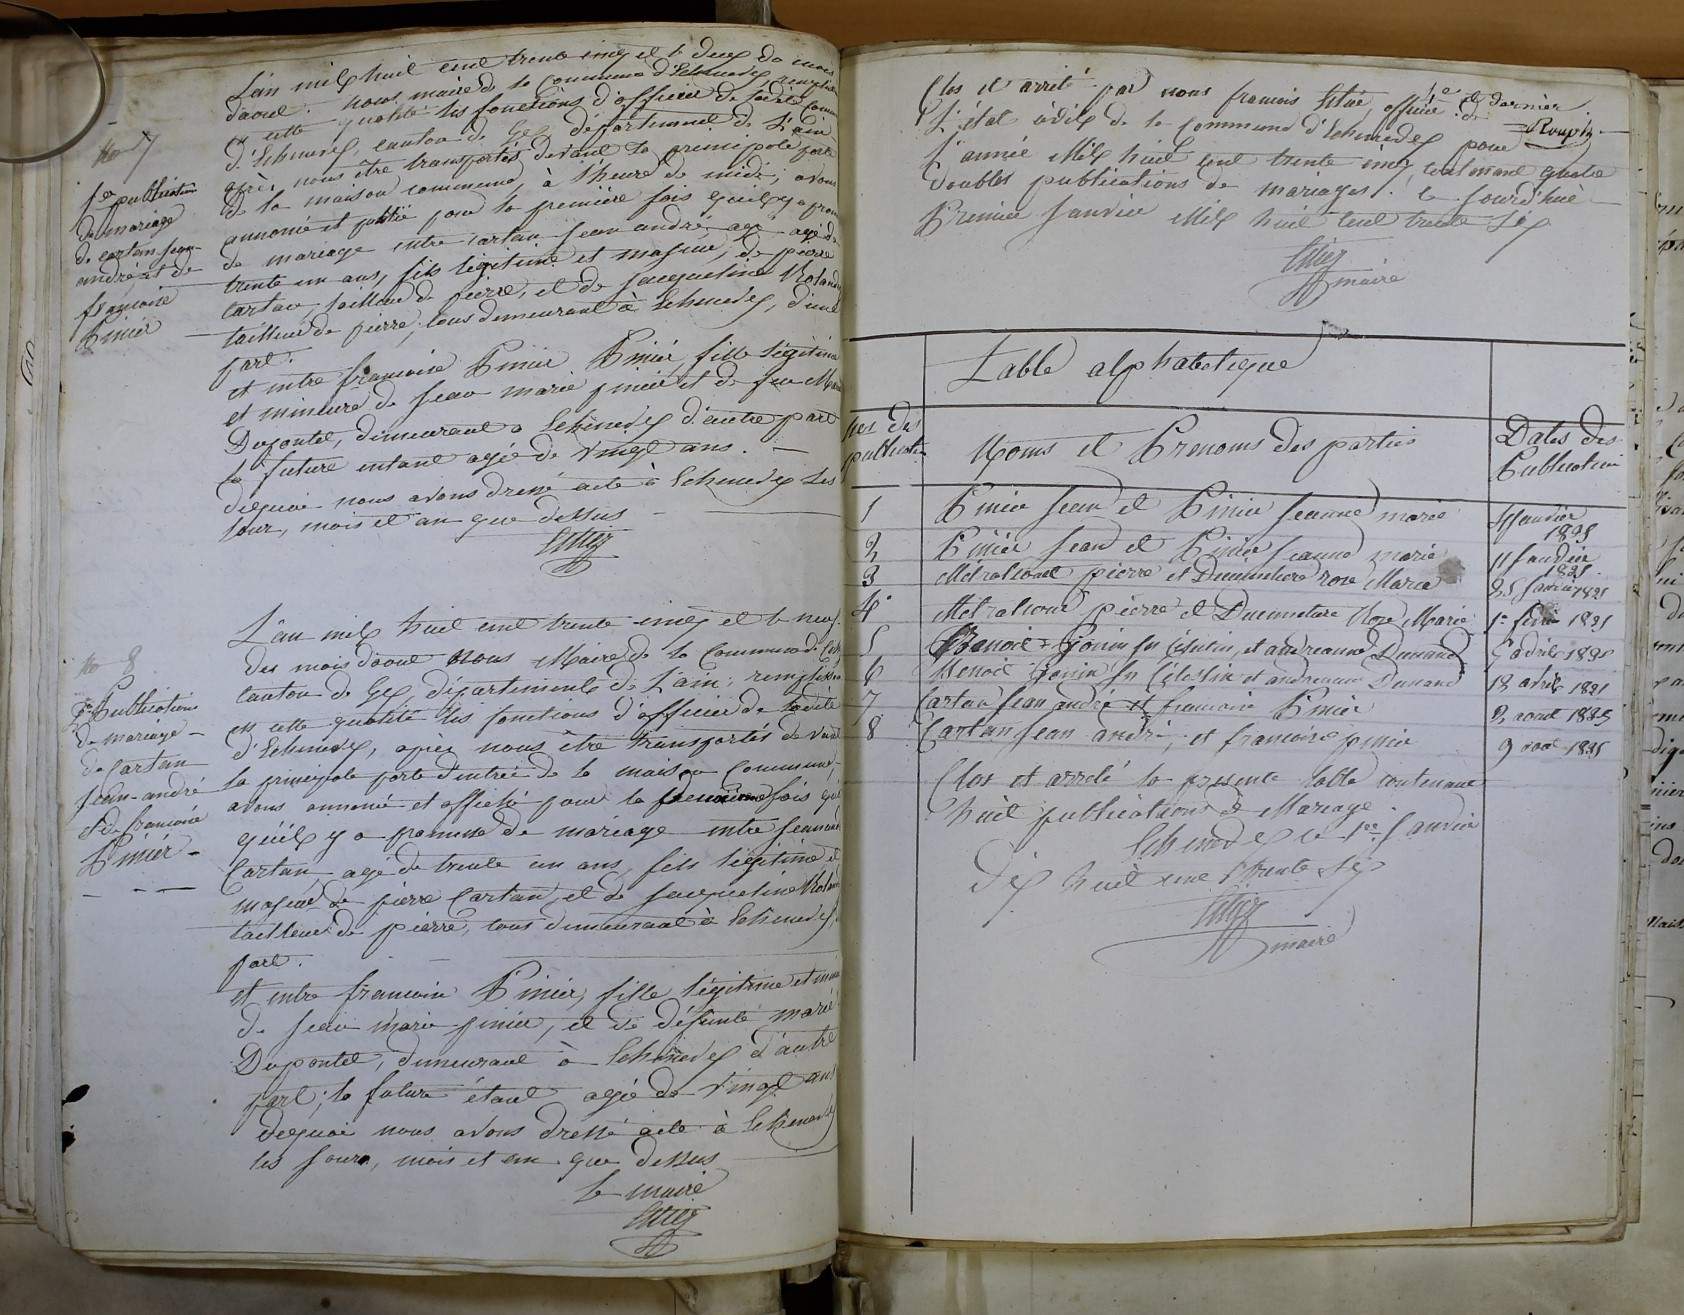 No 7
1re publication
de mariage
de cartan jean
andré et de
françoise
Pinier
L'an mil huit cent trente cinq et le deux du mois
d'aout. nous maire de la commune d'Echenevex remplissant
en cette qualité les fonctions d'officier de ladite commune
d'Echenevex, canton de Gex département de l'ain
après nous être transportés devant la principale porte
de la maison commune, à l'heure de midi; avons
annoncé et publié pour la première fois qu'il y a promesse
de mariage entre cartan jean andré, age agé de
trente un ans, fils légitime et majeur, de pierre
cartan, tailleur de pierre, et de jacqueline Roland
tailleur de pierre, tous demeurant à Echenevex, d'une
part.
et entre francoise Pinier Pinier, fille légitime
et mineure de jean marie pinier et de feu Marie
Dupontet, demeurant a Echenevex d'autre part
la future entant agée de vingt ans.
dequoi nous avons dressé acte à Echenevex les
jour, mois et an que dessus
No 8
2e Publication
de mariage
de Cartan
jean-andré
et de francoise
Pinier
L'an mil huit cent trente cinq et le neuf
des mois d'aout Nous Maire de la Commune d'Eche
canton de Gex, département de l'ain; remplissant
en cette qualité les fonctions d'officier de ladite
d'Echenevex, après nous être transportés devant
la principale porte d'entrée de la maison commune,
avons annoncé et affiché pour la fois que
qu'il y a promesse de mariage entre jean andré
Cartan, agé de trente un ans, fils légitime et
majeur de pierre Cartan, et de jacqueline Roland
tailleur de pierre, tous demeurant à Echenevex,
part.
et entre francoise Pinier, fille légitime et mineure
de jean marie pinier, et de défunte marie
Dupontet, demeurant à Echenevex d'autre
part; la future étant agée de vingt ans
dequoi nous avons dressé acte à Echenevex
les jours, mois et an que dessus
le maire
Clos et arrêté par nous francois officier de
l'état civil de la commune d'Echenevex pour
l'année Mil huit cent trente cinq contenant quatre
doubles publications de mariages. le jourd'hui
Premier janvier Mil huit cent trente six
maire
et dernier
Table alphabetique
nos des
publications
Noms et Prenoms des parties
Dates des
Publication
1 Pinier Jean et Pinier Jeanne marie 4 janvier 1835
2 Pinier Jean et Pinier Jeanne marie 11 janvier 1835
3 Métral pierre et Dumeture rose Marie 25 janvier 1835
4 Metral pierre et Dumeture Rose Marie 1er fevrier 1835
5 Benoit Gonin fn Célestin, et andreanne Dunand 5 avril 1835
6 Benoit Gonin fn Célestin et andreanne Dunand 12 avril 1835
7 Cartan Jean andré et francoise Pinier 2 aout 1835
8 Cartan Jean andré, et francoise pinier 9 aout 1835
Clos et arreté la presente table contenant
huit publications de Mariage.
Echenevex le 1er Janvier
dix huit cent trente six
maire